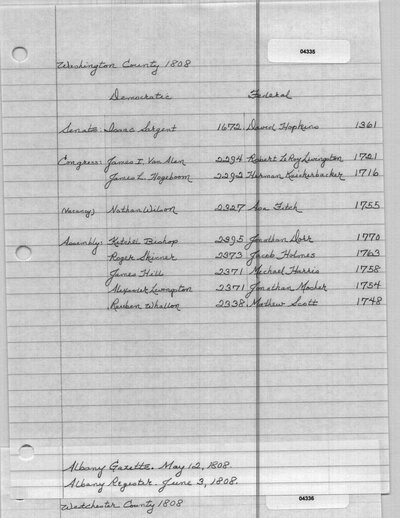 04335
Washington County 1808
Democratic Federal
Senate: Isaac Sargent 1672 David Hopkins 1361
Congress: James I. Van Alen 2294 Robert LeRoy Livingston 1721
James L. Hogeboom 2292 Herman Knickerbacker 1716
(Vacancy) Nathan Wilson 2327 Asa Fitch 1755
Assembly: Kitchel Bishop 2395 Jonathan Dorr 1770
Roger Skinner 2373 Jacob Holmes 1763
James Hill 2371 Michael Harris 1758
Alexander Livingston 2371 Jonathan Mosher 1754
Reuben Whallon 2338 Mathew Scott 1748
Albany Gazette. May 12, 1808.
Albany Register. June 3, 1808.
Westchester County 1808
04336